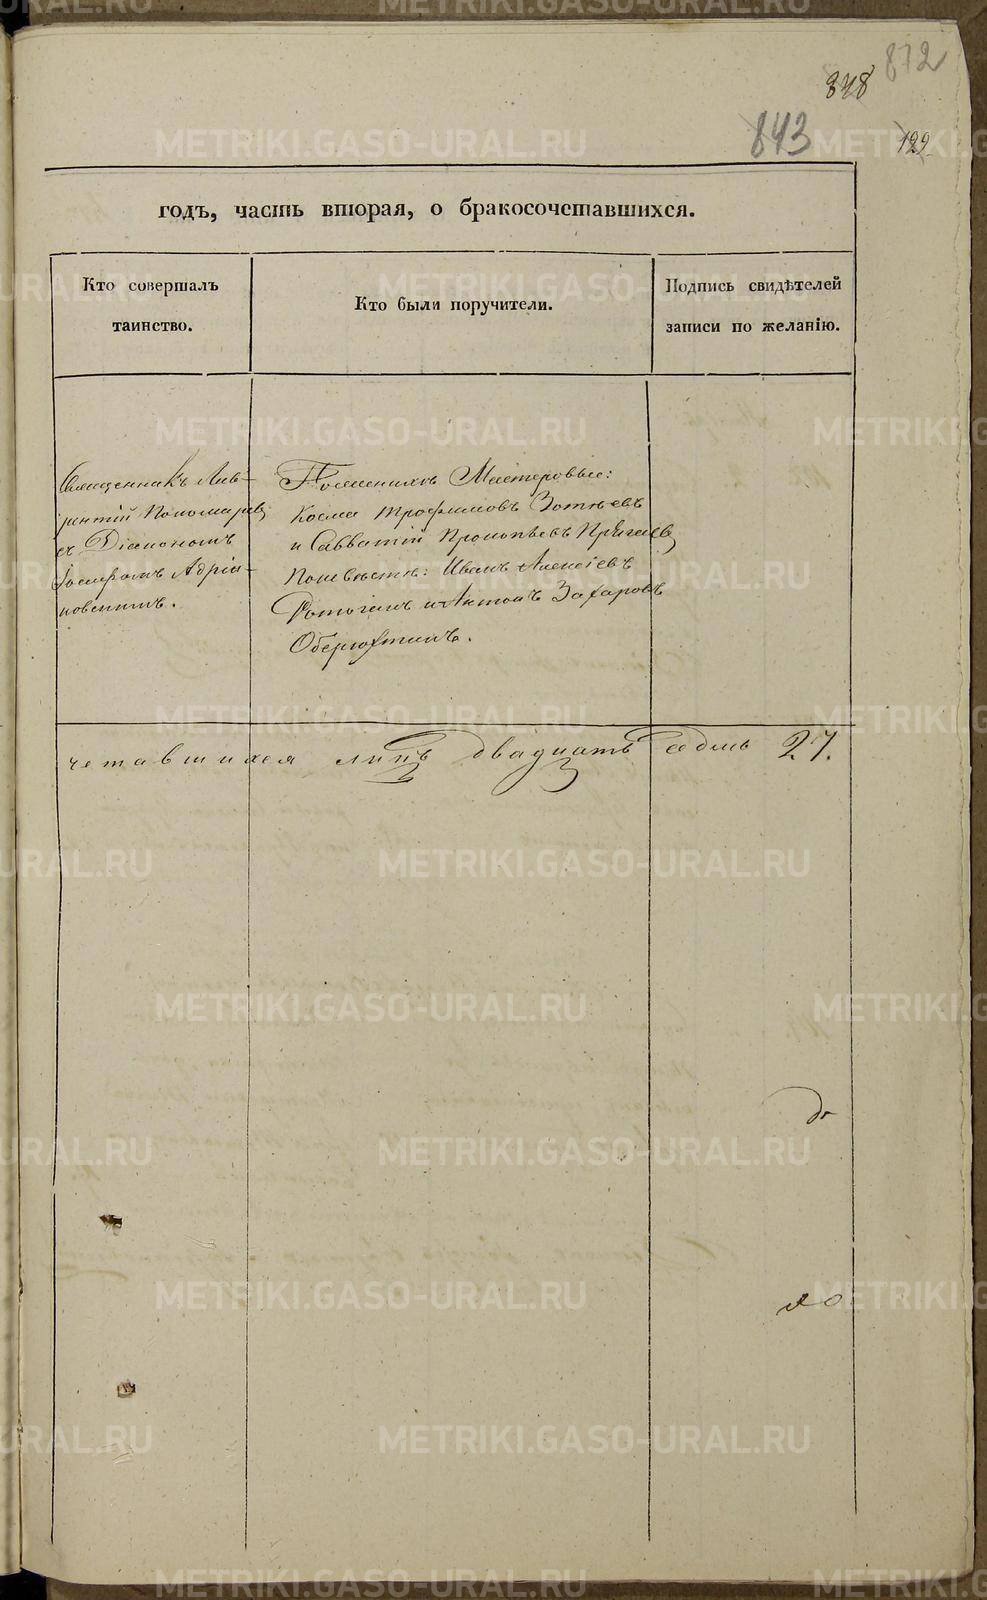 872
848
843
129
годъ, часть вторая, о бракосочетавшихся.
Кто совершалъ
таинство.
Кто были поручители.
Подпись свидѣтелей
записи по желанію.
Священникъ Лав-
рентій Пономаревъ
съ Діакономъ
Іосифомъ Адріа-
новскимъ.
Поженихѣ Мастеровые:
Косма Трофимовъ Зотѣевъ
и Савватій Прокопьевъ
Поневѣстѣ: Иванъ Алексіевъ
и Антонъ Захаровъ
Оберюхтинъ.
четавшихся двадцать седмь 27.
METRIKI.GASO-URAL.RU